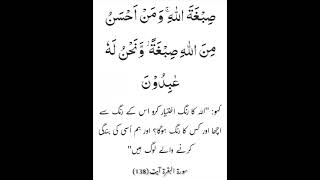 صِبْغَةَ اللّٰهِ ۚ وَمَنْ اَحْسَنُ
مِنَ اللّٰهِ صِبْغَةً ۫ وَّنَحْنُ لَهٗ
عٰبِدُوْنَ
کہو: "اللہ کا رنگ اختیار کرو اس کے رنگ سے
اچھا اور کس کا رنگ ہوگا؟ اور ہم اُسی کی بندگی
کرنے والے لوگ ہیں"
سورۃ البقرۃ آیت (138)